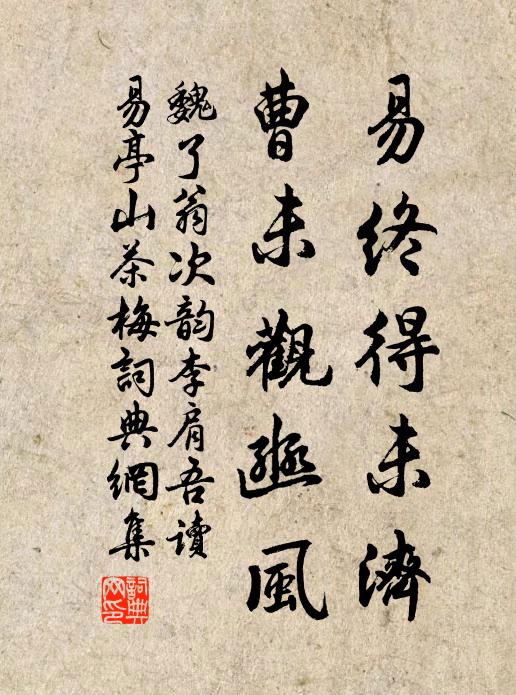 易終得未濟
曹未觀豳風
魏了翁次韵李肩吾讀
易亭山茶梅詞典網集
詞典
网印